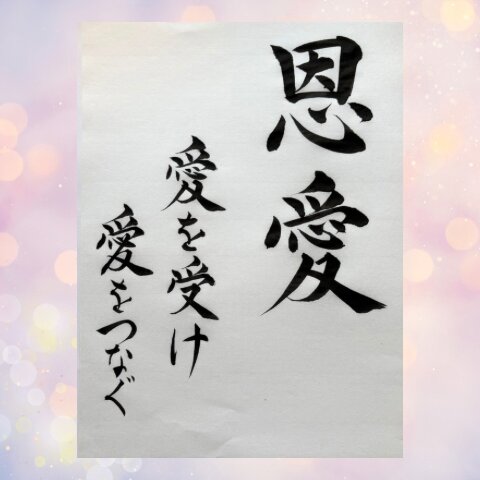 恩愛
愛を受け
愛をつなぐ